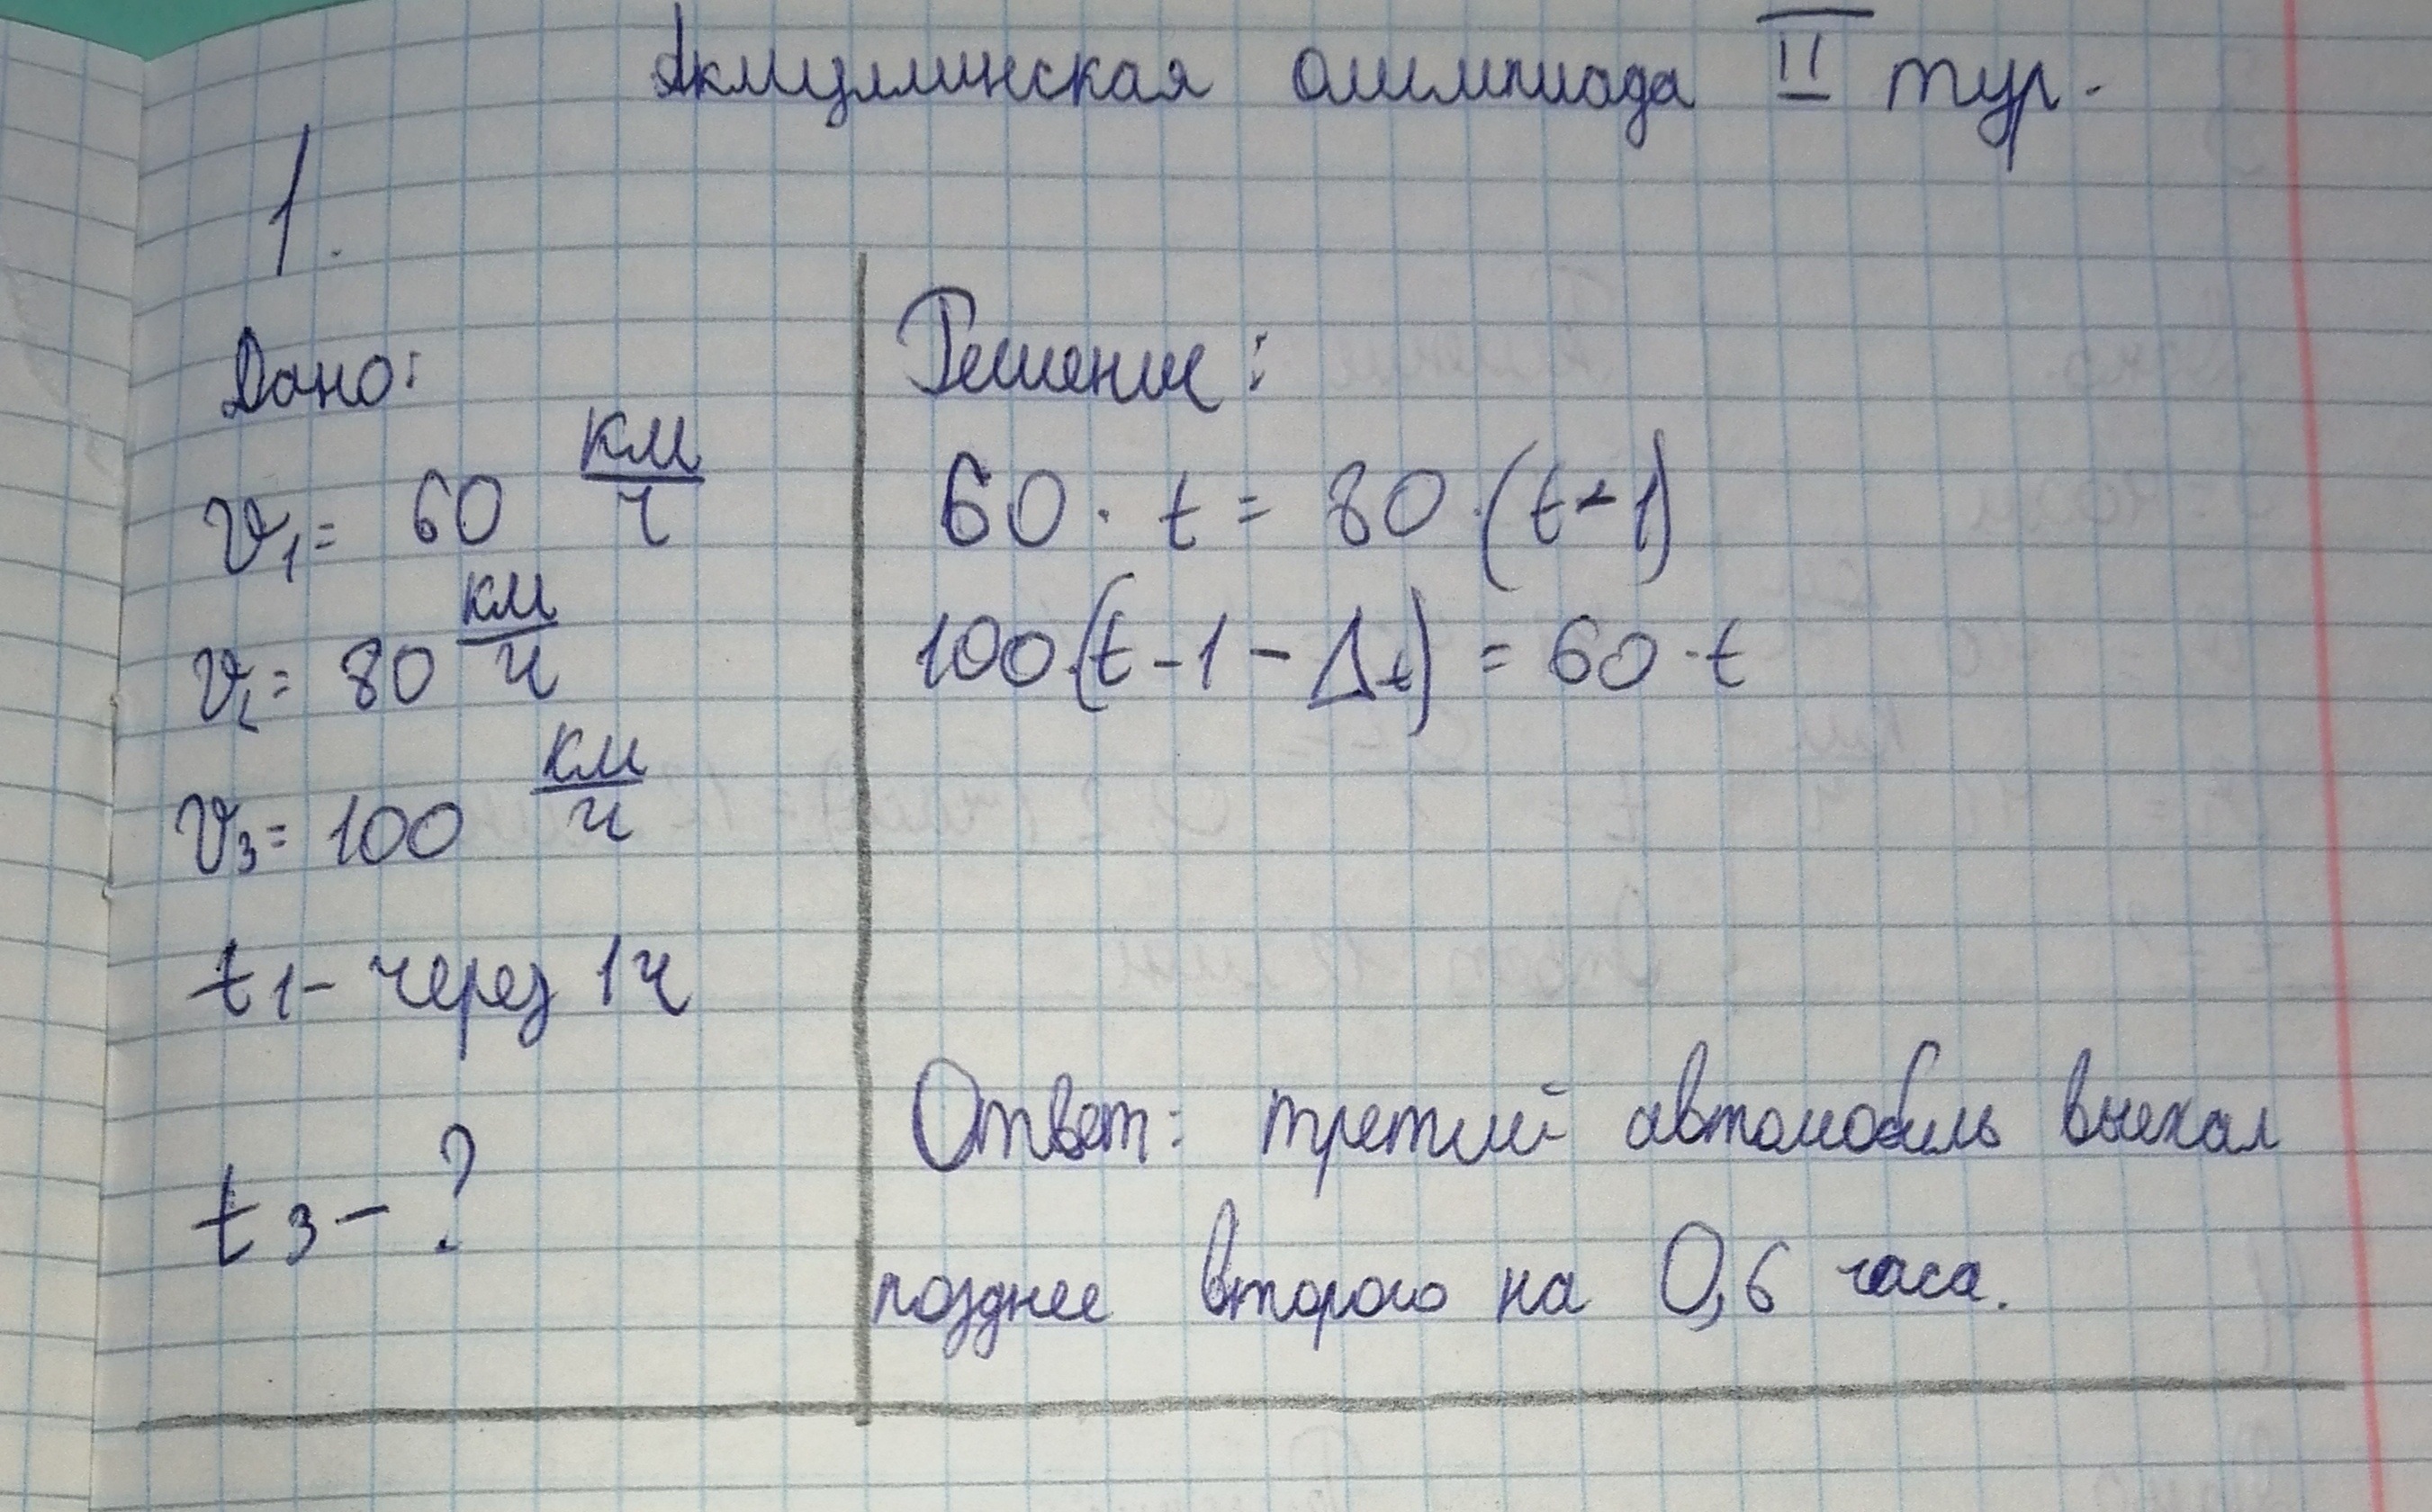 Акмуллинская олимпиада II тур.
1.
Дано:
v₁ = 60 км/ч
v₂ = 80 км/ч
v₃ = 100 км/ч
t₁ - через 1ч
t₃ - ?
Решение:
60 · t = 80 · (t - 1)
100 · (t - 1 - Δt) = 60 · t
Ответ: третий автомобиль выехал
позднее второго на 0,6 часа.